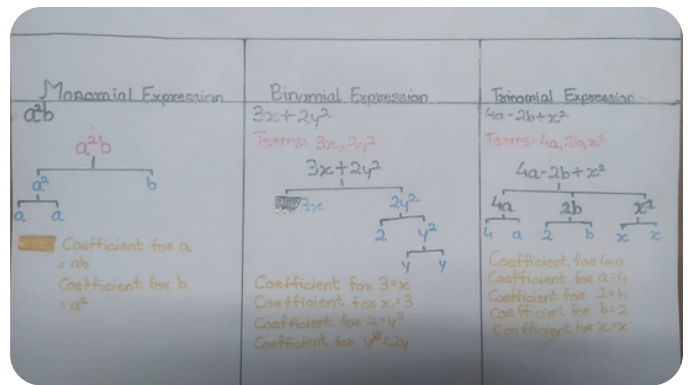 Monomial Expression
a²b
a²b
a² b
a a
Coefficient for a
= ab
Coefficient for b
= a²
Binomial Expression
3x+2y²
Terms= 3x, 2y²
3x+2y²
3x 2y²
2 y²
y y
Coefficient for 3=x
Coefficient for x=3
Coefficient for 2=y²
Coefficient for y=2y
Trinomial Expression
4a-2b+x²
Terms=4a, 2b, x²
4a-2b+x²
4a 2b x²
4 a 2 b x x
Coefficient for 4=a
Coefficient for a=4
Coefficient for 2=b
Coefficient for b=2
Coefficient for x=x